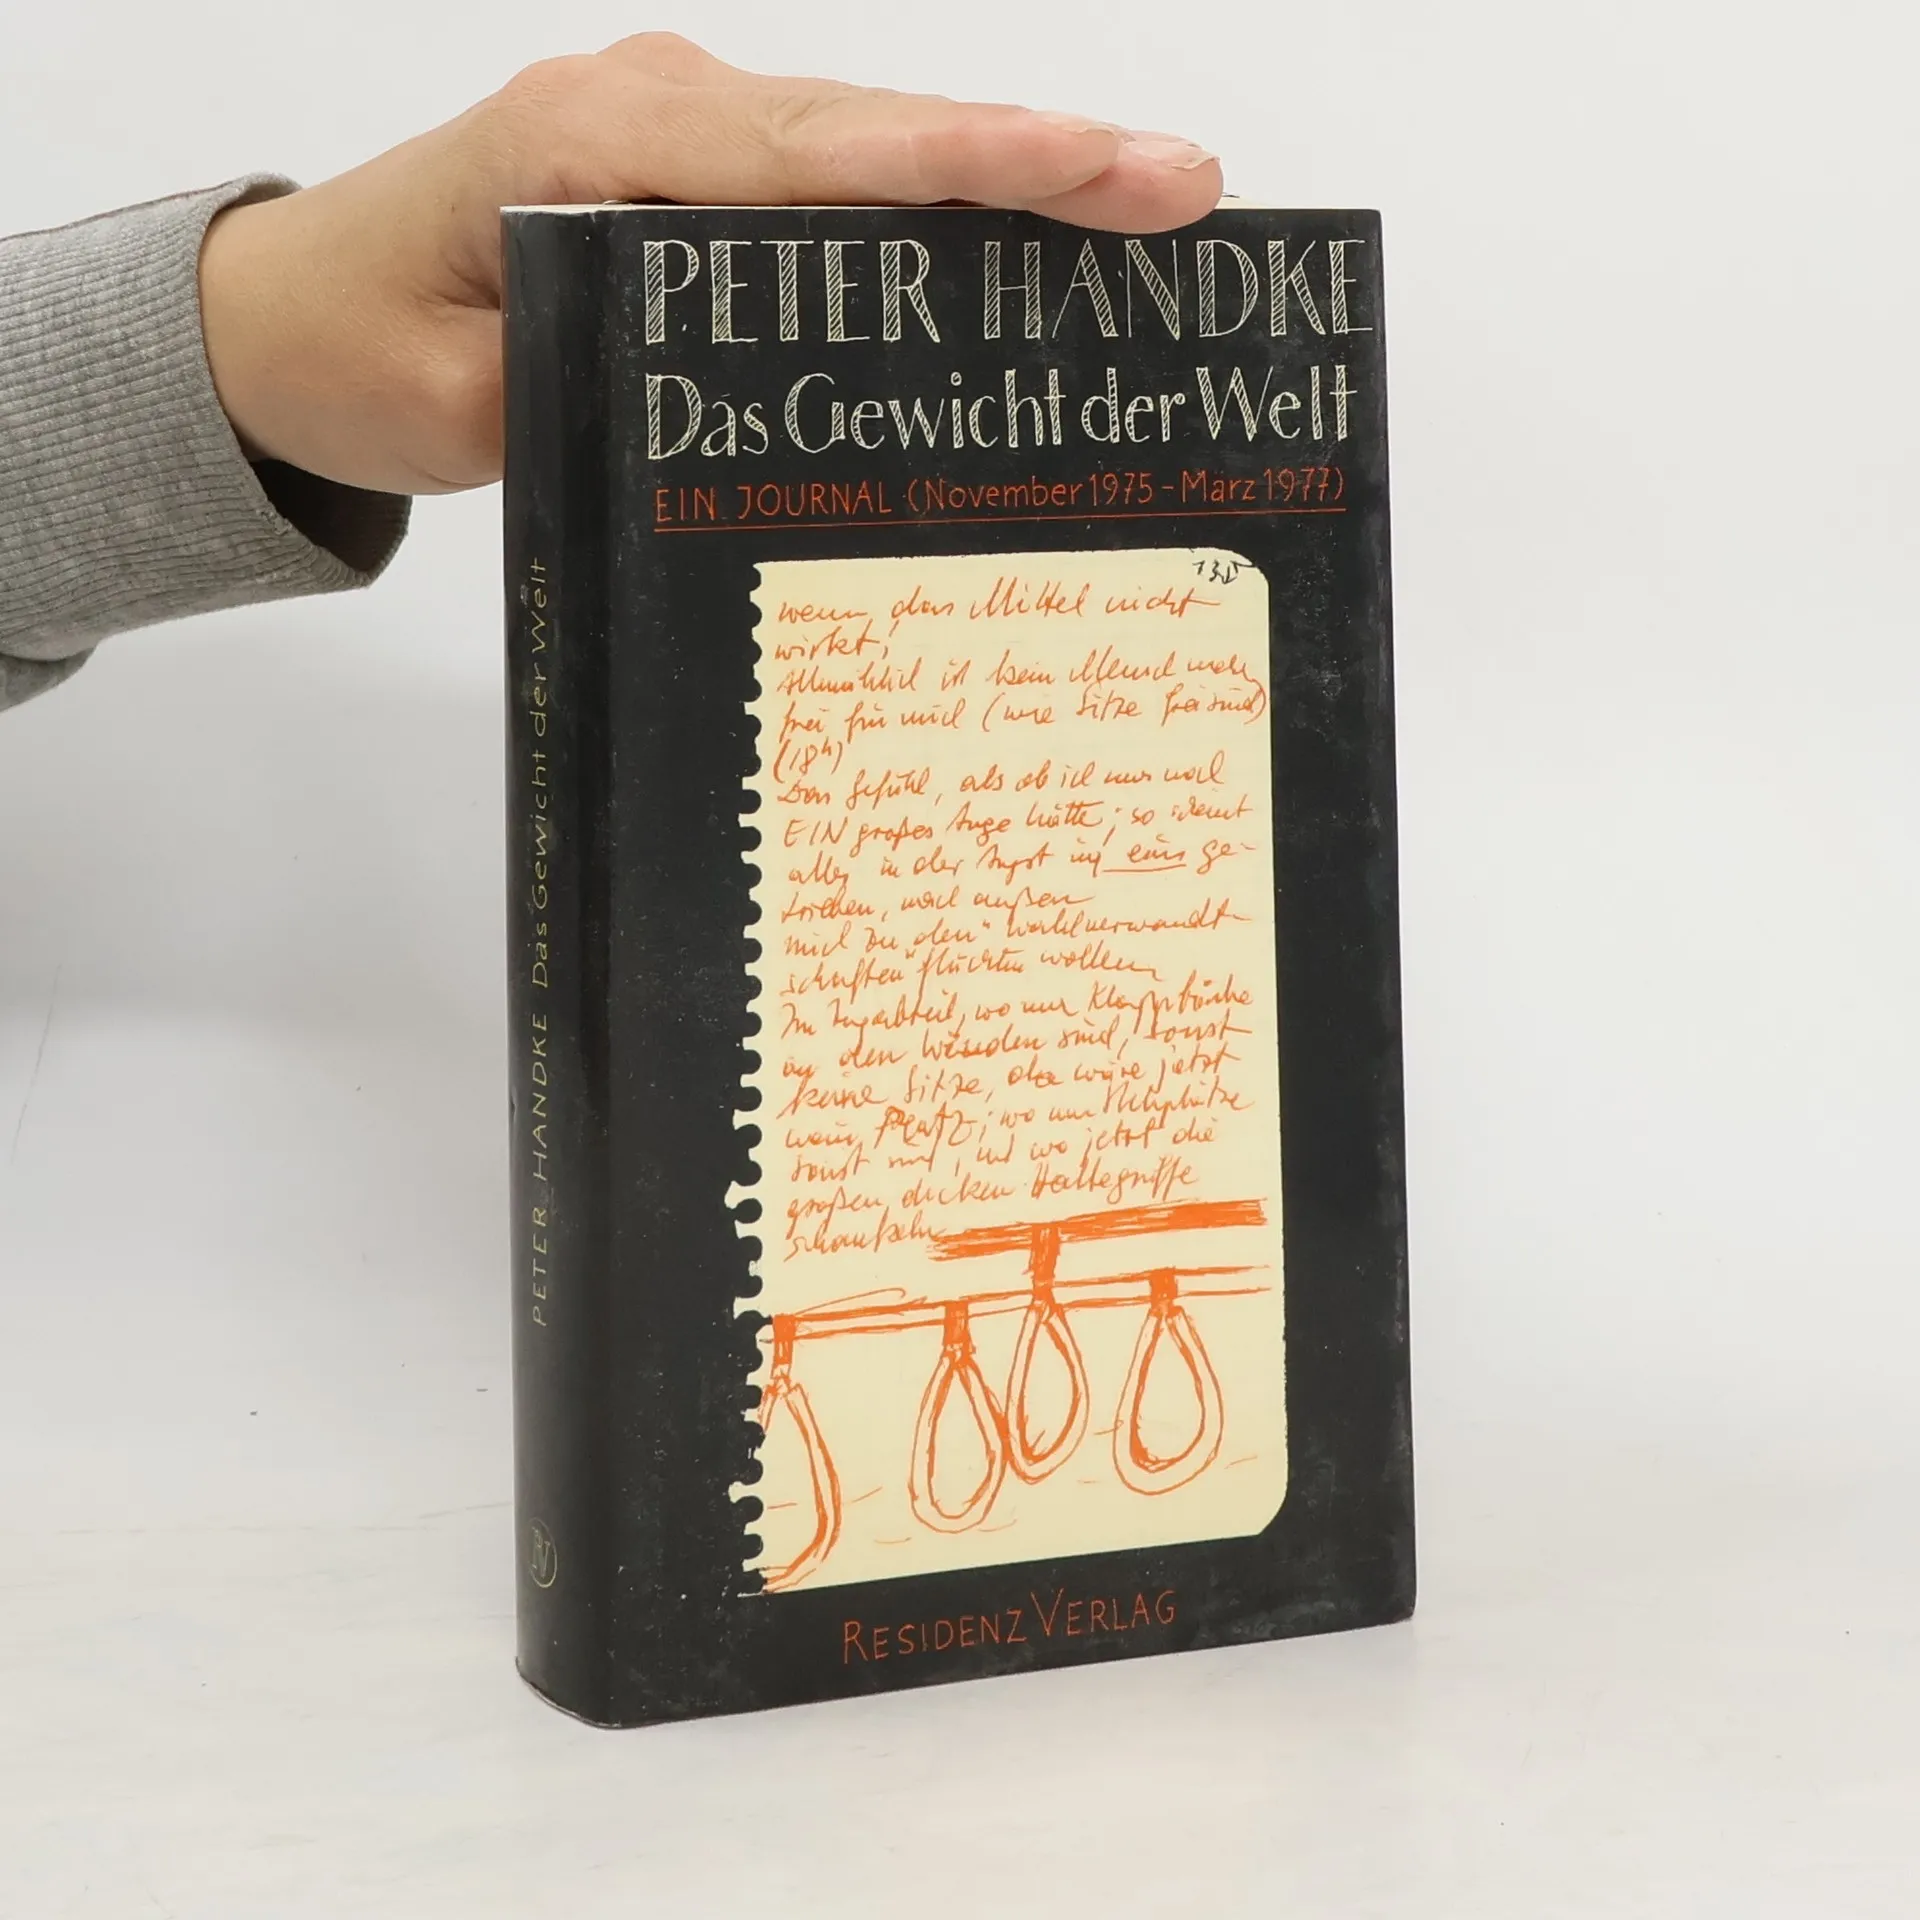 PETER HANDKE
Das Gewicht der Welt
EIN JOURNAL (November 1975 - März 1977)
wenn das Mittel nicht
wirkt!
Allmählich ist kein Mensch mehr
frei für mich (wie Sitze frei sind)
(18h)
Das Gefühl, als ob ich nur noch
EIN großes Auge hätte; so scheint
alles in der Angst in eins ge-
trieben, nach außen
mich zu den "Wahlverwandt-
schaften" flüchten wollen
Im Zugabteil, wo nur Klappbänke
an den Wänden sind, sonst
keine Sitze, da wäre jetzt
mein Platz; wo nur Stehplätze
sonst sind, und wo jetzt die
großen dicken Haltegriffe
schaukeln
RESIDENZ VERLAG
PETER HANDKE Das Gewicht der Welt